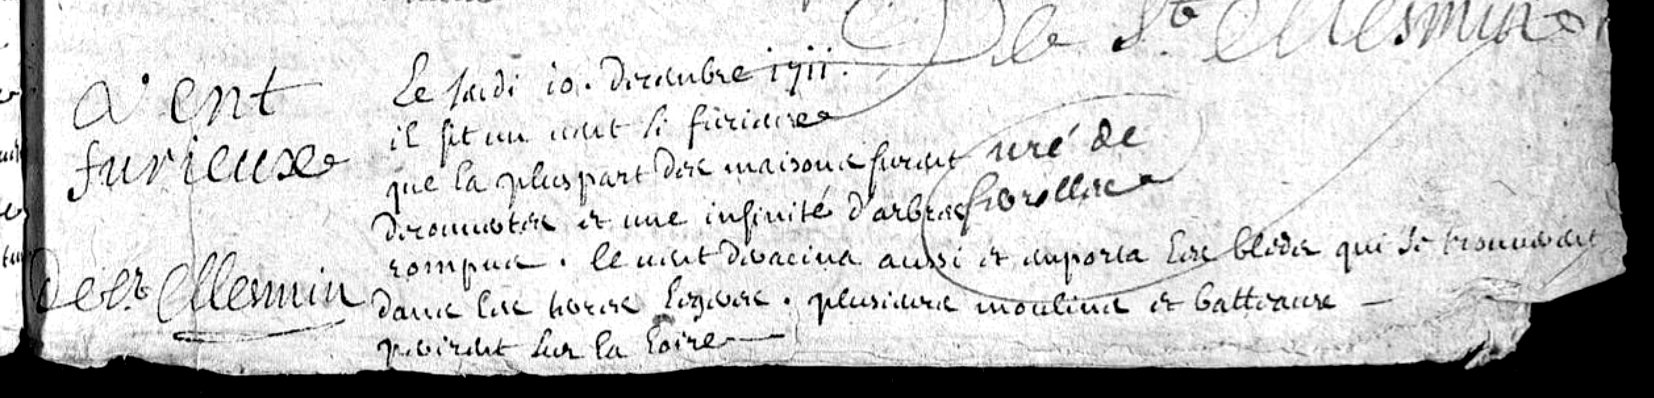 De St Mesmin
Vent
furieuxe
De St Mesmin
Le jeudi 10. decembre 1711.
il fit un vent si furieuxe
que la pluspart des maisons furent
decouvertes et une infinité d'arbres
rompus. le vent deracina aussi et emporta les bleds qui se trouvoient
dans les terres legeres. plusieurs moulins et batteaux
perirent sur la Loire
curé de
ferolles